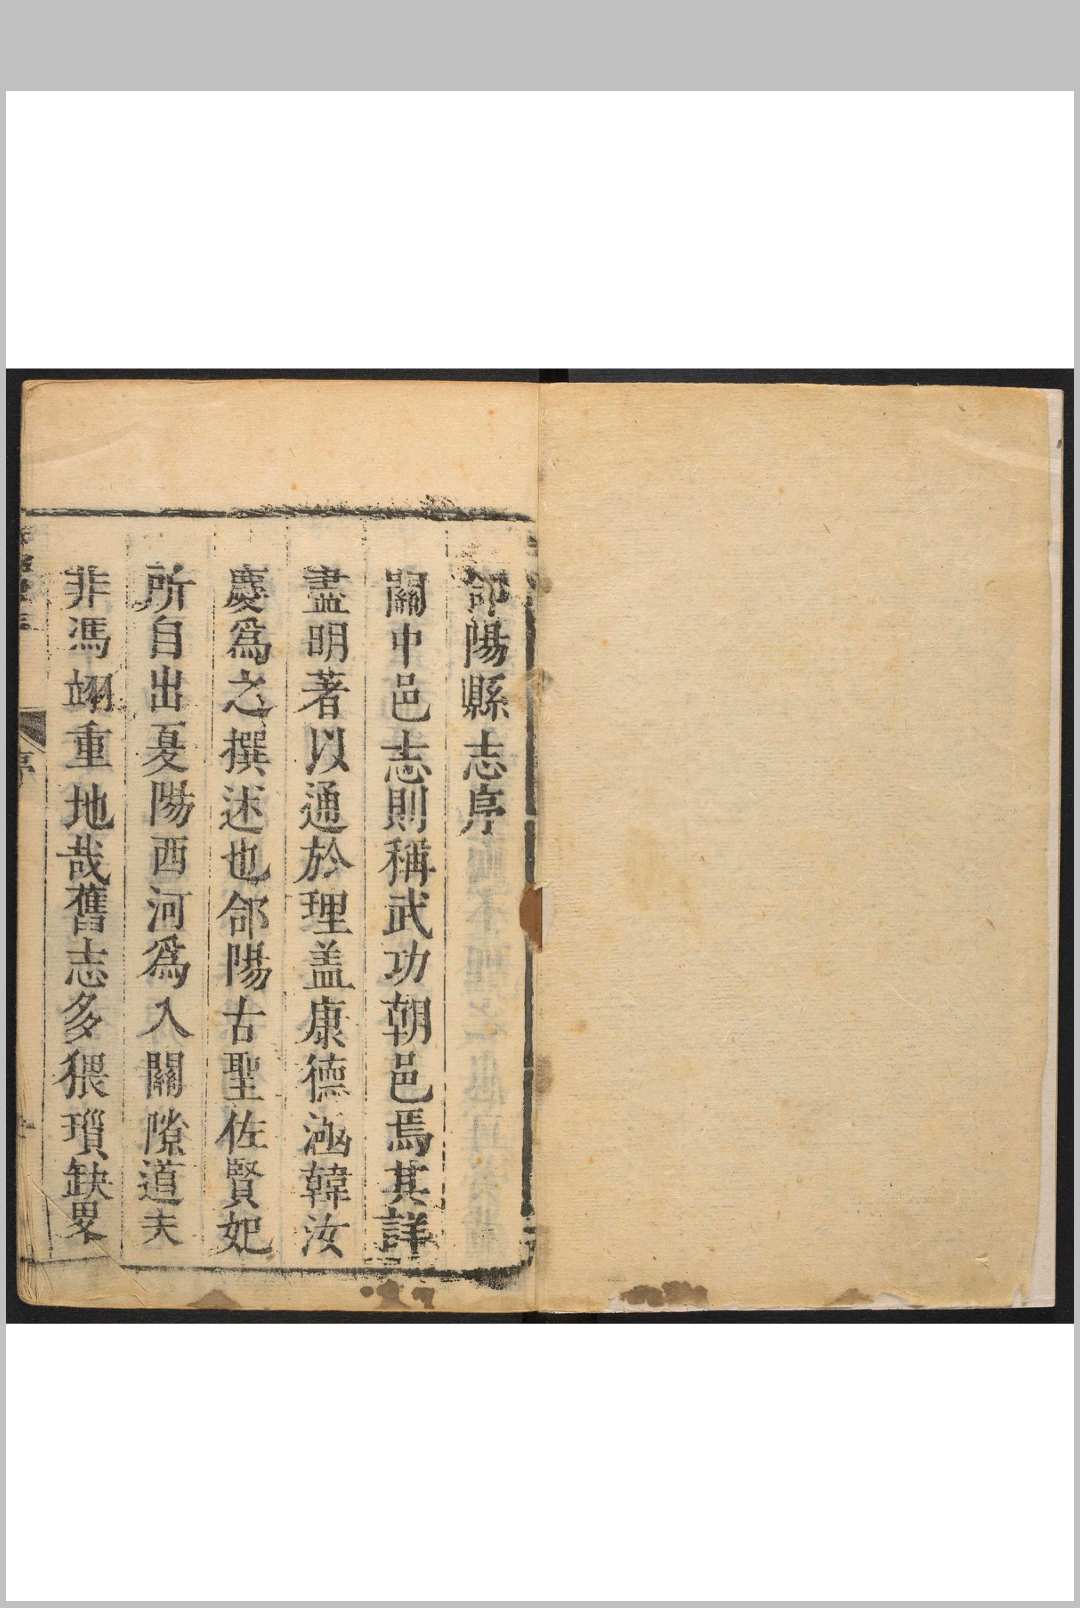 郃陽縣志序
關中邑志則稱武功朝邑焉其詳
盡明著以通於理盖康德涵韓汝
慶爲之撰述也郃陽古聖佐賢妃
所自出夏陽西河爲入關隙道夫
非馮翊重地哉舊志多猥瑣缺畧
序